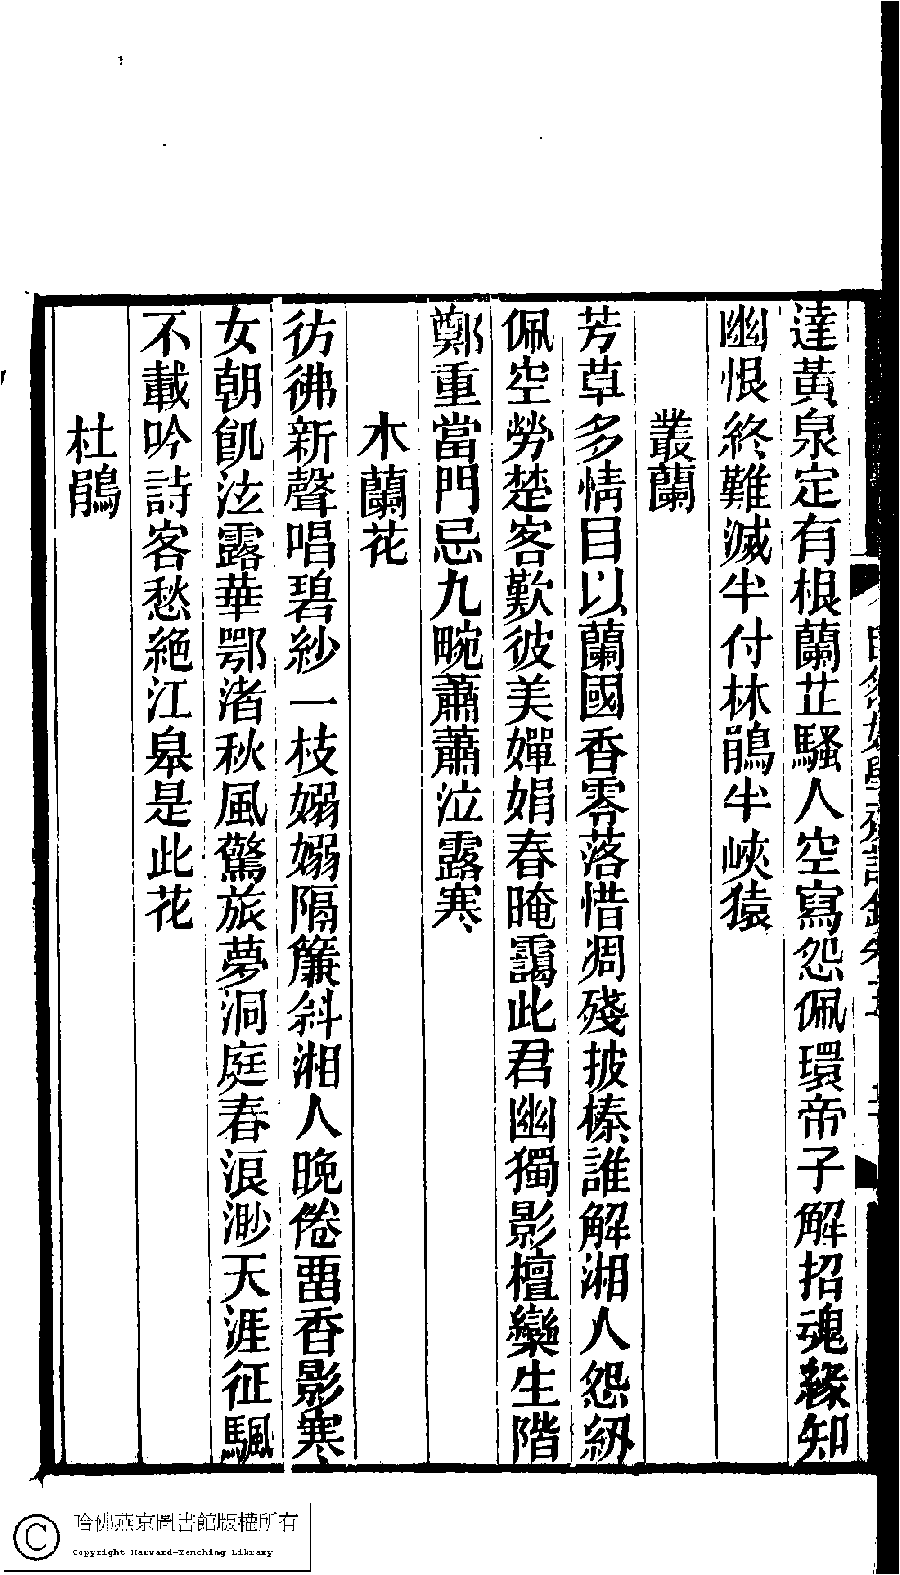 達黃泉定有根蘭芷騷人空寫怨佩環帝子解招魂緣知
幽恨終難滅半付林鵑半峽猿
叢蘭
芳草多情目以蘭國香零落惜凋殘披榛誰解湘人怨紉
佩空勞楚客歎彼美嬋娟春晻靄此君幽獨影檀欒生階
鄭重當門忌九畹蕭蕭泣露寒
木蘭花
彷彿新聲唱碧紗一枝嫋嫋隔簾斜湘人晚倦畱香影寒
女朝飢泫露華鄂渚秋風驚旅夢洞庭春浪渺天涯征颿
不載吟詩客愁絕江皋是此花
杜鵑
哈佛燕京圖書館版權所有
Copyright Harvard-Yenching Library